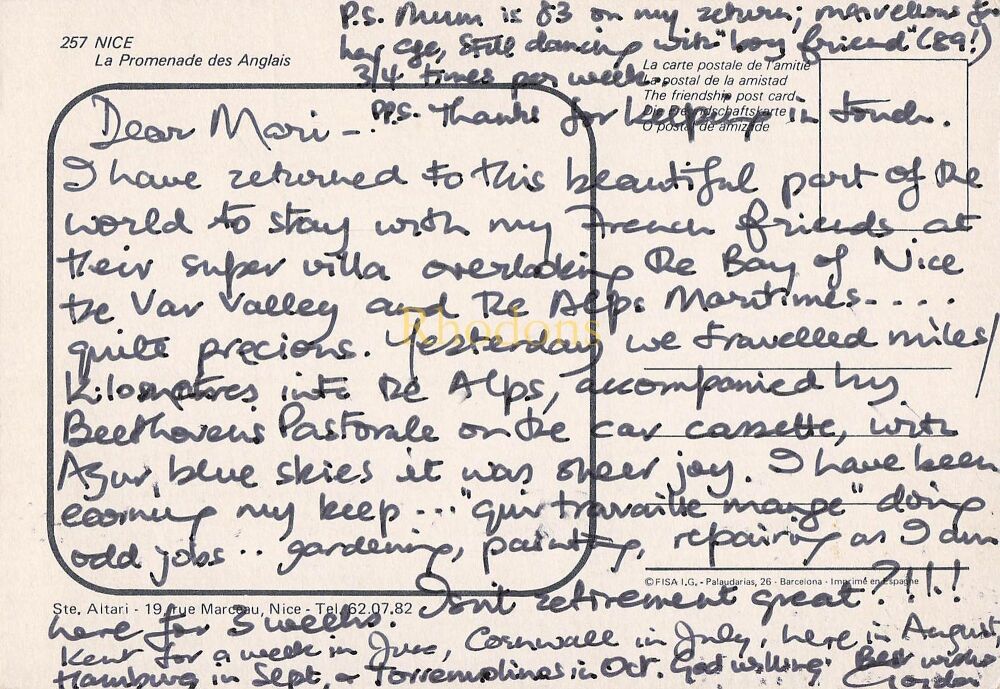 P.S. Mum is 83 on my return; marvellous for
her age, still dancing with "boy friend" (89!)
3/4 times per week.
P.P.S. Thanks for keeping in touch.
257 NICE
La Promenade des Anglais
La carte postale de l'amitie
La postal de la amistad
The friendship post card
Die Freundschaftskarte
O postal de amizade
Dear Mari -
I have returned to this beautiful part of the
world to stay with my French friends at
their super villa overlooking the Bay of Nice
the Var Valley and the Alps Maritimes - . . .
quite precious. Yesterday we travelled miles/
kilometres into the Alps, accompanied by
Beethoven's Pastorale on the car cassette, with
Azur blue skies it was sheer joy. I have been
earning my keep ... "qui travaille mange" doing
odd jobs .. gardening, painting, repairing as I am
here for 3 weeks. Isn't retirement great?!!!
Kent for a week in June, Cornwall in July, here in August
Hamburg in Sept, & Torremolinos in Oct. God willing. Best wishes
Gordon
©FISA I.G. - Palaudarias, 26 - Barcelona - Imprimé en Espagne
Ste. Altari - 19, rue Marceau, Nice - Tel. 62.07.82
Rhodons